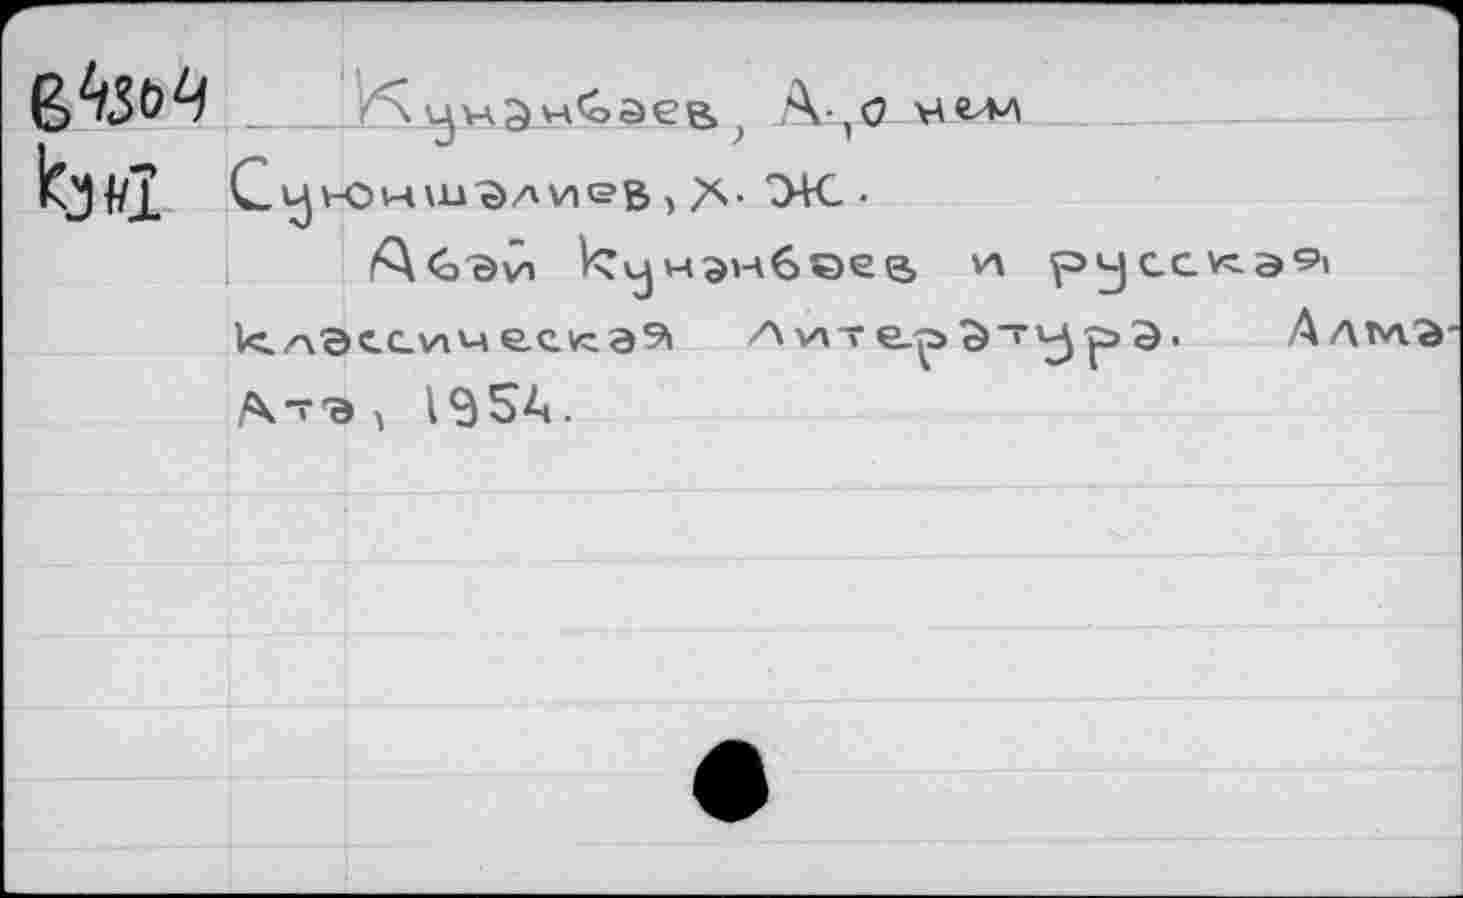 В4304 Кунанбаев, А., о нем
Ку#1 Суюншалиев, Х. Ж.
Абай Кунанбаев и русская
классическая литература. Алма-
Ата, 1954.